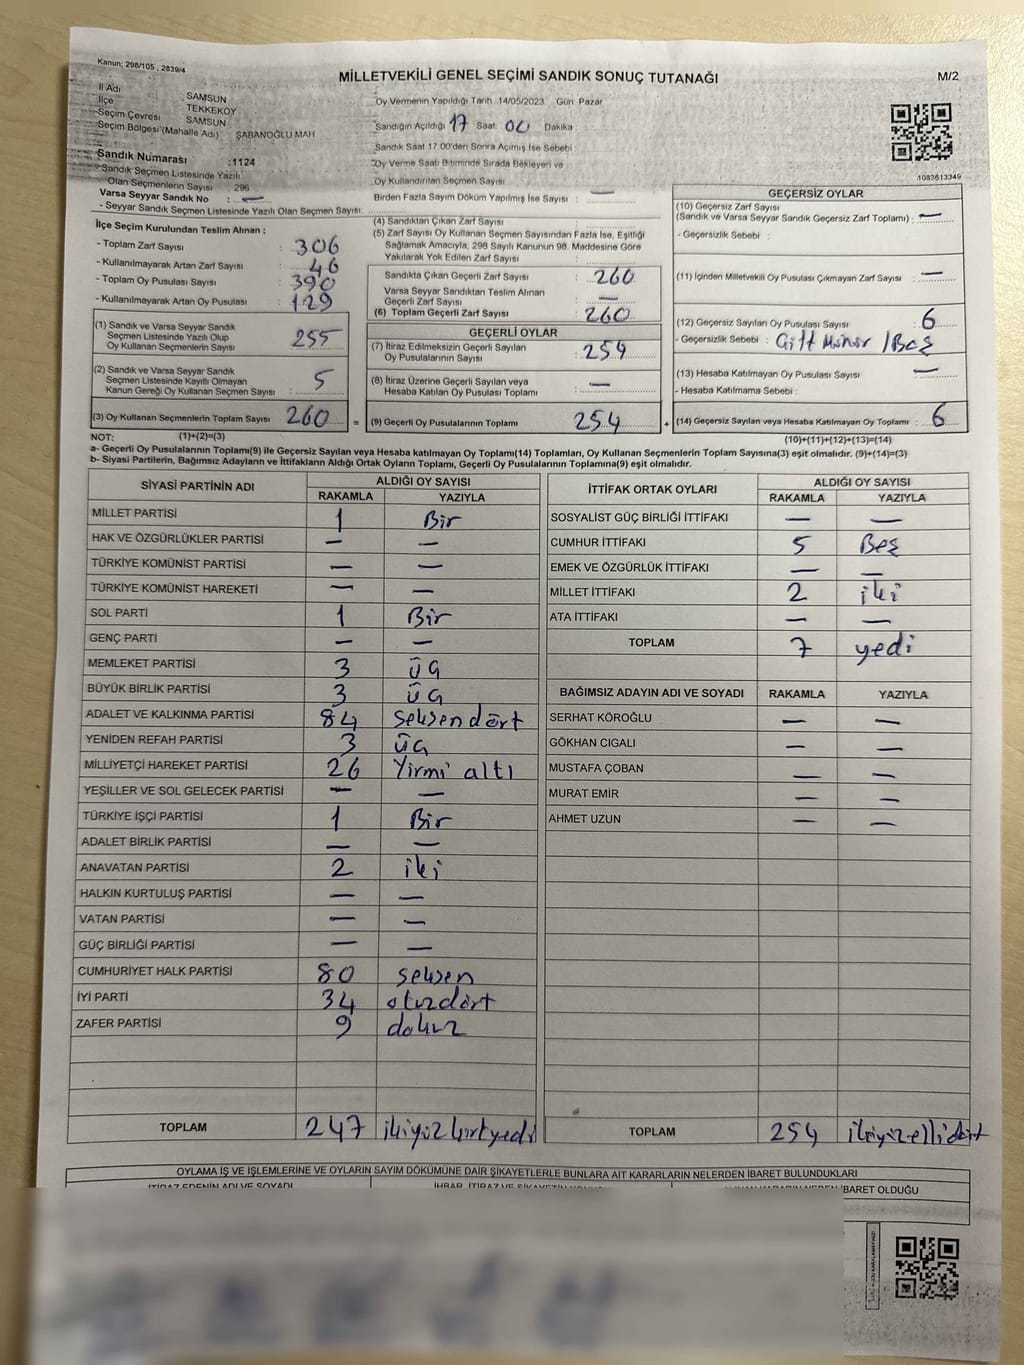 Kanun; 298/105 , 2839/4
MİLLETVEKİLİ GENEL SEÇİMİ SANDIK SONUÇ TUTANAĞI
M/2
İl Adı SAMSUN
İlçe TEKKEKÖY
Seçim Çevresi SAMSUN
Seçim Bölgesi (Mahalle Adı) ŞABANOĞLU MAH
Sandık Numarası :1124
Sandık Seçmen Listesinde Yazılı
Olan Seçmenlerin Sayısı 296
Varsa Seyyar Sandık No : —
- Seyyar Sandık Seçmen Listesinde Yazılı Olan Seçmen Sayısı:
Oy Vermenin Yapıldığı Tarih 14/05/2023 Gün: Pazar
Sandığın Açıldığı 17 Saat 00 Dakika
Sandık Saat 17:00'den Sonra Açımış İse Sebebi
Oy Verme Saati Bitiminde Sırada Bekleyen ve
Oy Kullandırılan Seçmen Sayısı
Birden Fazla Sayım Döküm Yapılmış İse Sayısı : —
1083613349
İlçe Seçim Kurulundan Teslim Alınan ;
- Toplam Zarf Sayısı : 306
- Kullanılmayarak Artan Zarf Sayısı : 46
- Toplam Oy Pusulası Sayısı : 390
- Kullanılmayarak Artan Oy Pusulası : 129
(1) Sandık ve Varsa Seyyar Sandık
Seçmen Listesinde Yazılı Olup
Oy Kullanan Seçmenlerin Sayısı 255
(2) Sandık ve Varsa Seyyar Sandık
Seçmen Listesinde Kayıtlı Olmayan
Kanun Gereği Oy Kullanan Seçmen Sayısı : 5
(3) Oy Kullanan Seçmenlerin Toplam Sayısı 260 =
(1)+(2)=(3)
(4) Sandıktan Çıkan Zarf Sayısı :
(5) Zarf Sayısı Oy Kullanan Seçmen Sayısından Fazla İse, Eşitliği
Sağlamak Amacıyla, 298 Sayılı Kanunun 98. Maddesine Göre
Yakılarak Yok Edilen Zarf Sayısı :
Sandıkta Çıkan Geçerli Zarf Sayısı : 260
Varsa Seyyar Sandıktan Teslim Alınan
Geçerli Zarf Sayısı : —
(6) Toplam Geçerli Zarf Sayısı : 260
GEÇERLİ OYLAR
(7) İtiraz Edilmeksizin Geçerli Sayılan
Oy Pusulalarının Sayısı : 254
(8) İtiraz Üzerine Geçerli Sayılan veya
Hesaba Katılan Oy Pusulası Toplamı : —
(9) Geçerli Oy Pusulalarının Toplamı 254 +
GEÇERSİZ OYLAR
(10) Geçersiz Zarf Sayısı
(Sandık ve Varsa Seyyar Sandık Geçersiz Zarf Toplamı) : —
- Geçersizlik Sebebi :
(11) İçinden Milletvekili Oy Pusulası Çıkmayan Zarf Sayısı : —
(12) Geçersiz Sayılan Oy Pusulası Sayısı : 6
- Geçersizlik Sebebi : Çift Mühür /Boş
(13) Hesaba Katılmayan Oy Pusulası Sayısı : —
- Hesaba Katılmama Sebebi :
(14) Geçersiz Sayılan veya Hesaba Katılmayan Oy Toplamı : 6
(10)+(11)+(12)+(13)=(14)
NOT:
a- Geçerli Oy Pusulalarının Toplamı(9) ile Geçersiz Sayılan veya Hesaba katılmayan Oy Toplamı(14) Toplamları, Oy Kullanan Seçmenlerin Toplam Sayısına(3) eşit olmalıdır. (9)+(14)=(3)
b- Siyasi Partilerin, Bağımsız Adayların ve İttifakların Aldığı Ortak Oyların Toplamı, Geçerli Oy Pusulalarının Toplamına(9) eşit olmalıdır.
SİYASİ PARTİNİN ADI ALDIĞI OY SAYISI
RAKAMLA YAZIYLA
MİLLET PARTİSİ 1 Bir
HAK VE ÖZGÜRLÜKLER PARTİSİ — —
TÜRKİYE KOMÜNİST PARTİSİ — —
TÜRKİYE KOMÜNİST HAREKETİ — —
SOL PARTİ 1 Bir
GENÇ PARTİ — —
MEMLEKET PARTİSİ 3 üç
BÜYÜK BİRLİK PARTİSİ 3 üç
ADALET VE KALKINMA PARTİSİ 84 seksendört
YENİDEN REFAH PARTİSİ 3 üç
MİLLİYETÇİ HAREKET PARTİSİ 26 Yirmi altı
YEŞİLLER VE SOL GELECEK PARTİSİ — —
TÜRKİYE İŞÇİ PARTİSİ 1 Bir
ADALET BİRLİK PARTİSİ — —
ANAVATAN PARTİSİ 2 iki
HALKIN KURTULUŞ PARTİSİ — —
VATAN PARTİSİ — —
GÜÇ BİRLİĞİ PARTİSİ — —
CUMHURİYET HALK PARTİSİ 80 seksen
İYİ PARTİ 34 otuzdört
ZAFER PARTİSİ 9 dokuz
TOPLAM 247 ikiyüz kırkyedi
İTTİFAK ORTAK OYLARI ALDIĞI OY SAYISI
RAKAMLA YAZIYLA
SOSYALİST GÜÇ BİRLİĞİ İTTİFAKI — —
CUMHUR İTTİFAKI 5 Beş
EMEK VE ÖZGÜRLÜK İTTİFAKI — —
MİLLET İTTİFAKI 2 iki
ATA İTTİFAKI — —
TOPLAM 7 yedi
BAĞIMSIZ ADAYIN ADI VE SOYADI RAKAMLA YAZIYLA
SERHAT KÖROĞLU — —
GÖKHAN CIGALI — —
MUSTAFA ÇOBAN — —
MURAT EMİR — —
AHMET UZUN — —
TOPLAM 254 ikiyüzellidört
OYLAMA İŞ VE İŞLEMLERİNE VE OYLARIN SAYIM DÖKÜMÜNE DAİR ŞİKAYETLERLE BUNLARA AİT KARARLARIN NELERDEN İBARET BULUNDUKLARI
İTİRAZ EDENİN ADI VE SOYADI
İHBAR, İTİRAZ VE ŞİKAYETİN
İBARET OLDUĞU